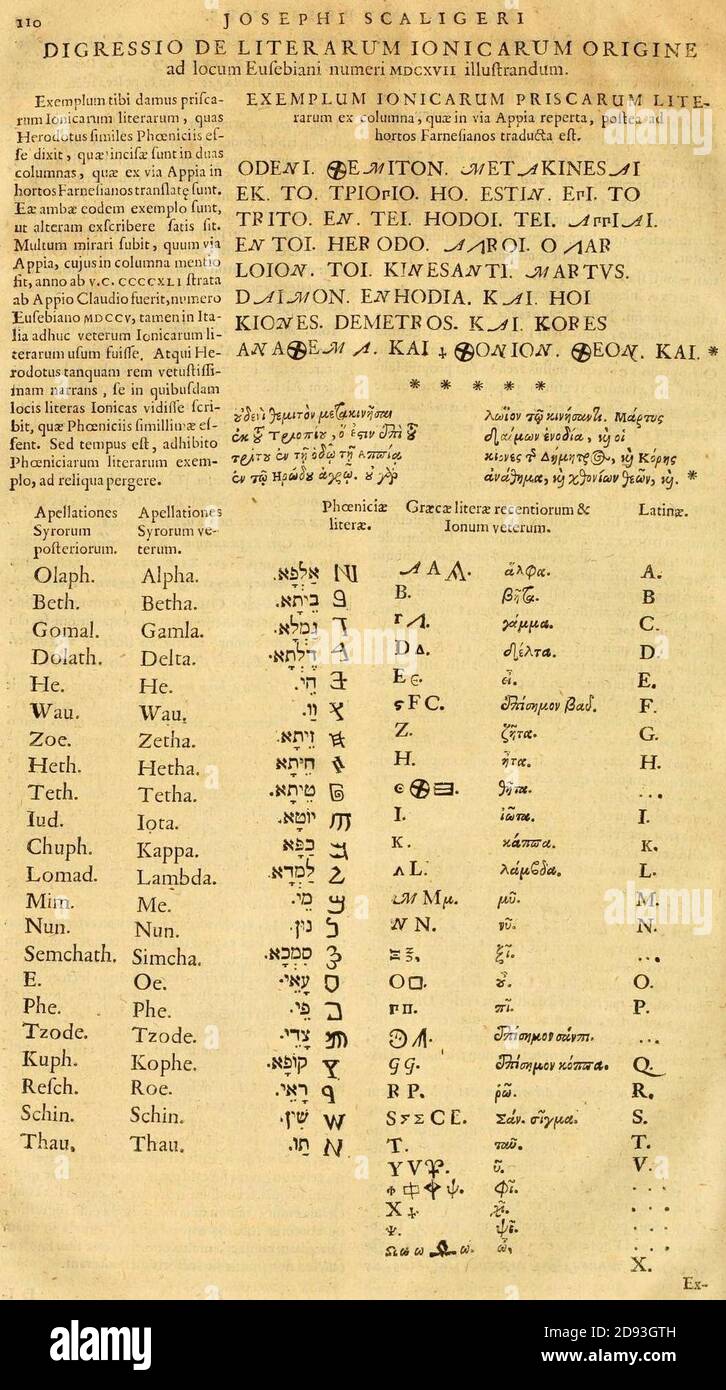 110 JOSEPHI SCALIGERI
DIGRESSIO DE LITERARUM IONICARUM ORIGINE
ad locum Eusebiani numeri MDCXVII illustrandum.
Exemplum tibi damus prisca-
rum Ionicarum literarum, quas
Herodotus similes Phœniciis es-
se dixit, quæ incisæ sunt in duas
columnas, quæ ex via Appia in
hortos Farnesianos translatę sunt.
Eæ ambæ eodem exemplo sunt,
ut alteram exscribere satis sit.
Multum mirari subit, quum via
Appia, cujus in columna mentio
fit, anno ab V.C. CCCCXLI strata
ab Appio Claudio fuerit, numero
Eusebiano MDCCV, tamen in Ita-
lia adhuc veterum Ionicarum li-
terarum usum fuisse. Atqui He-
rodotus tanquam rem vetustissi-
mam narrans, se in quibusdam
locis literas Ionicas vidisse scri-
bit, quæ Phœniciis simillimæ es-
sent. Sed tempus est, adhibito
Phœniciarum literarum exem-
plo, ad reliqua pergere.
EXEMPLUM IONICARUM PRISCARUM LITE-
rarum ex columna, quæ in via Appia reperta, postea ad
hortos Farnesianos traducta est.
ODENI. ⊗EMITON. METAKINESAI
EK. TO. TPIOΓIO. HO. ESTIN. EΓI. TO
TRITO. EN. TEI. HODOI. TEI. AΓΓIAI.
EN TOI. HERODO. AΛROI. O ΛAR
LOION. TOI. KINESANTI. MARTVS.
DAIMON. ENHODIA. KAI. HOI
KIONES. DEMETROS. KAI. KORES
ANA⊗EMA. KAI ⸸⊗ONION. ⊗EON. KAI. *
* * * * *
οὐδενὶ θεμιτὸν μετακινῆσαι
ἐκ τοῦ Τριοπίου, ὅ ἐστιν ἐπὶ τοῦ
τρίτου ἐν τῇ ὁδῷ τῇ Ἀππίᾳ
ἐν τῷ Ἡρώδου ἀγρῷ. οὐ γὰρ
λώϊον τῷ κινήσαντι. Μάρτυς
δαίμων ἐνοδία, καὶ οἱ
κίονες τ͂ Δήμητρος, καὶ Κόρης
ἀνάθημα, καὶ χθονίων θεῶν, καὶ. *
Apellationes Syrorum posteriorum. Apellationes Syrorum veterum. Phœniciæ literæ. Græcæ literæ recentiorum & Ionum veterum. Latinæ.
Olaph. Alpha. אַלְפָא. A A Λ. ἄλφα. A.
Beth. Betha. בֵּיתָא. B. βῆτα. B
Gomal. Gamla. גַּמְלָא. Γ Λ. γάμμα. C.
Dolath. Delta. דֶלְתָא. D Δ. δέλτα. D.
He. He. הֵי. E ϵ. εἶ. E.
Wau. Wau. וָו. ϛ F C. ἐπίσημον βαῦ. F.
Zoe. Zetha. זֵיתָא. Z. ζῆτα. G.
Heth. Hetha. חֵיתָא. H. ἦτα. H.
Teth. Tetha. טֵיתָא. ϴ ⊗ 日. θῆτα. ...
Iud. Iota. יוֹטָא. I. ἰῶτα. I.
Chuph. Kappa. כַּפָּא. K. κάππα. K.
Lomad. Lambda. לַמְדָא. Λ L. λάμβδα. L.
Mim. Me. מֵי. M M μ. μῦ. M.
Nun. Nun. נוּן. N N. νῦ. N.
Semchath. Simcha. סִמְכָא. Ξ ξ. ξῖ.
E. Oe. עָאֵי. O □. οὖ. O.
Phe. Phe. פֵי. Γ Π. πῖ. P.
Tzode. Tzode. צָדֵי. ἐπίσημον σάνπι. ...
Kuph. Kophe. קוֹפָא. G G. ἐπίσημον κόππα. Q.
Resch. Roe. רָאֵי. R P. ῥῶ. R.
Schin. Schin. שִׁין. S Σ C. Σάν. σῖγμα. S.
Thau. Thau. תַו. T. ταῦ. T.
Y V. ὖ. V.
Φ ψ. φῖ. ...
X ⸸. χῖ. ...
Ψ. ψῖ. ...
Ω ω ω ω. ὦ. X.
Ex-
alamy
Image ID: 2D93GTH
www.alamy.com